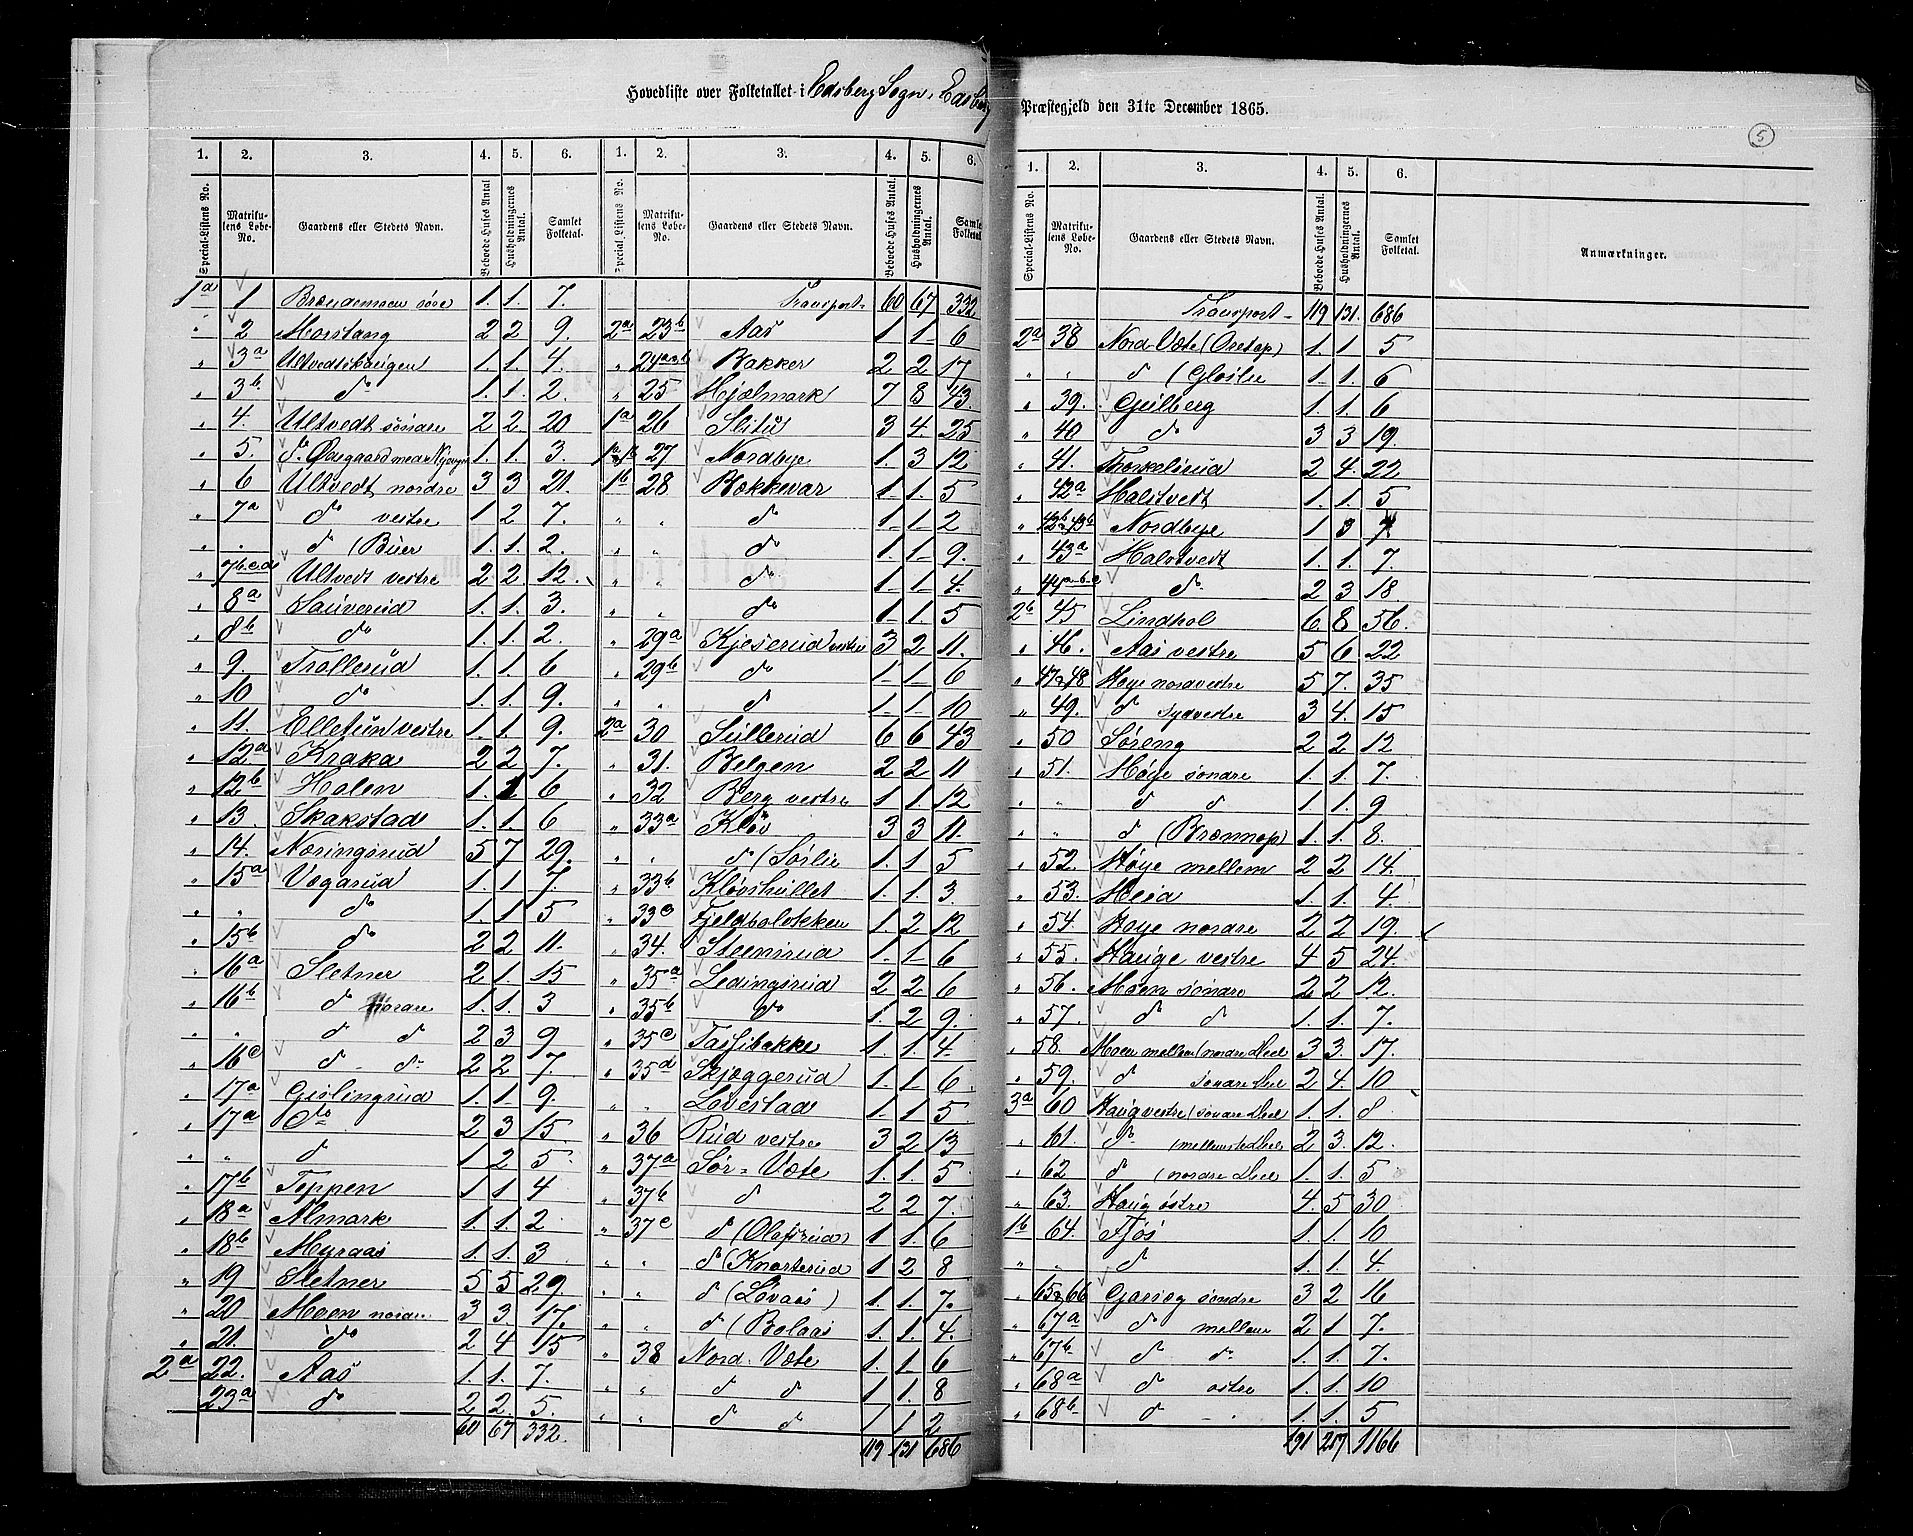 Hovedliste over Folketallet i Edsberg Sogn, Edsberg Præstegjeld den 31te December 1865.
5
1. 2. 3. 4. 5. 6. 1. 2. 3. 4. 5. 6.
Special-Listens No. Matrikulens Løbe-No. Gaardens eller Stedets Navn. Beboede Huses Antal Husholdningernes Antal. Samlet Folketal. Special-Listens No. Matrikulens Løbe-No. Gaardens eller Stedets Navn. Beboede Huses Antal. Husholdningernes Antal. Samlet Folketal.
1a 1 Brændemoen søre 1. 1. 7.
" 2 Morstang 2 2 9.
" 3a Ultvedtshaugen 1. 1. 4.
" 3b do 1. 1. 2.
" 4. Ultvedt søndre 2 2. 20
" 5. do Øvregaard med 1. 1. 3.
" 6 Ultvedt nordre 3 3 21.
" 7a do vestre 1 2 7.
" " do (Buer 1. 1. 2.
" 7b.c.d Ultvedt vestre 2. 2. 12.
" 8a Sauverud 1. 1. 3.
" 8b do 1. 1. 2.
" 9. Trollerud 1. 1. 6
" 10 do 1. 1. 9.
" 11. Elletun vestre 1. 1. 9.
" 12a Kraka 2 2 7.
" 12b Holen 1. 1 6
" 13. Skakstad 1. 1. 6
" 14. Næringsrud 5 7 29.
" 15a Vegarud 1. 1 7.
" " do 1. 1 5
" 15b do 2 2 11.
" 16a Sletner 2 1. 15
" 16b do nordre 1. 1. 3
" " do do 2 3 9
" 16c do do 2 2 7.
" 17a Gislingrud 1. 1 9.
" 17a do 2 3 15.
" " do 1 2 5
" 17b Teppen 1 1 4
" 18a Almark 1. 1. 2
" 18b Myraas 1. 1. 3
" 19 Sletner 5 5 29.
" 20 Moen nordre 3 3. 17.
" 21. do 2 4 15
2a 22. Aas 1. 1. 7.
23a do 2 2. 5.
60 67 332.
Transport 60 67 332
2a 23b Aas 1 1 6
" 24a&b Bakker 2 2 17
" 25 Hjælmark 7 8 43.
1a 26 Slitu 3 4. 25
27 Nordbye 1. 3 12
1b 28 Bækkevar 1 1. 5
" " do 1 1 2
" " do 1 1 9.
" " do 1 1 4.
" " do 1 1 5
" 29a Kjeserud vestre 3 2 11.
" 29b do 1 1 6
" " do 1 1 10
2a 30 Sullerud 6 6 43
" 31. Belgen 2 2 11
" 32 Berg vestre 1 1. 12
" 33a Kløv 3 3 11.
" " do (Sørlie 1. 1 5
" 33b Kløvshullet 1. 1. 3.
" 33c Fjeldholekken 1. 2 12
" 34. Steensrud 1. 1 6
" 35a Ledingsrud 2 2 6
" 35b do 1. 2 9.
" 35c Tassibakke 1. 1. 4.
" 35d Skjæggerud 1. 1 6.
" " Lovestad 1. 1 5
" 36 Rud vestre 3 2 13
" 37a Sør-Væte 1. 1. 5
" 37b do 2 2 7.
" 37c do (Olafsrud) 1 1. 6
" " do (Knarterud 1 2 8
" " do (Lovaas) 1. 1. 7.
" " do (Bolaas 1. 1. 4.
" 38 Nord-Væte 1. 1 6
" " do do 1 1. 8
" " do do 1 1 2
119 131 686
1. 2. 3. 4. 5. 6.
Special-Listens No. Matrikulens Løbe-No. Gaardens eller Stedets Navn. Beboede Huses Antal. Husholdningernes Antal. Samlet Folketal. Anmærkninger.
Transport 119 131. 686
2a 38 Nord-Væte (Øretop) 1. 1 5
" " do (Gloslie 1. 1. 6
" 39. Geilberg 1. 1. 6
" 40 do 3 3 19.
" 41. Thorkelsrud 2 4. 22
" 42a Halstvedt 1. 1. 5
" 42b&43b Nordbye 1 3 7.
" 43a Halstvedt 1. 1. 7.
" 44a-b-c do 2 3 18.
2b 45 Lindhol 6 8 56.
" 46. Aas vestre 5 6 22
" 47&48 Høye nordvestre 5 7. 35
" 49. do sydvestre 3 4. 15
" 50 Søreng 2 2 12
" 51. Høye søndre 1 1. 7.
" " do do 1 1. 9
" " do (Brænnop) 1. 1. 8.
" 52. Høye mellem 2 2 14.
" 53. Heia 1. 1. 4
" 54. Høye nordre 2 2 19.
" 55. Hauge vestre 4 5 24.
" 56. Moen søndre 2 2 12.
" 57. do do 1. 1. 7.
" 58. Moen mellem (nordre Deel 3 3. 17.
" 59. do søndre Deel 2 4. 10
3a 60 Haug vestre (søndre Deel 1. 1. 8
" 61. do (mellemste Deel 2 3. 12.
" 62 do (nordre Deel 1. 1. 5
" 63. Haug østre 4. 5 30
1b 64. Fjøs 1. 1. 10
" " do 1. 1. 4.
" 65&66 Garseg søndre 3 2 16
" 67a do mellem 2 1 7.
" 67b do do 1. 1. 7.
" 68a do østre 1. 1. 10
" 68b do " 1. 1. 5
191 217 1166